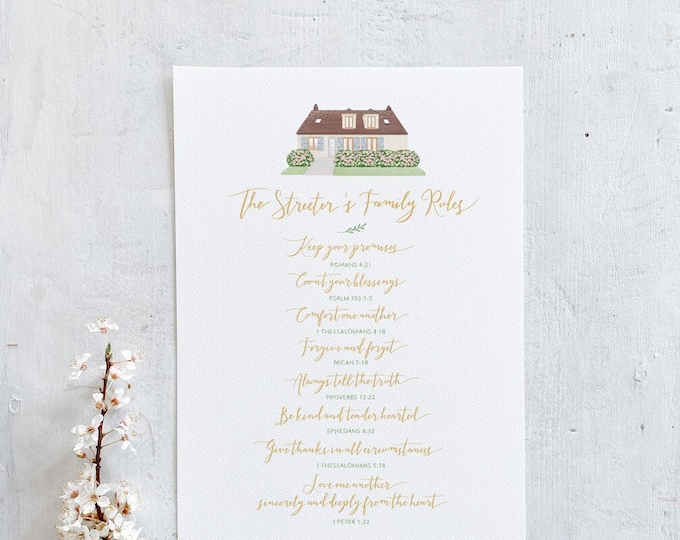 The Streeter's Family Rules
Keep your promises
ROMANS 4:21
Count your blessings
PSALM 103:1-5
Comfort one another
1 THESSALONIANS 4:18
Forgive and forget
MICAH 7:18
Always tell the truth
PROVERBS 12:22
Be kind and tender hearted
EPHESIANS 4:32
Give thanks in all circumstances
1 THESSALONIANS 5:18
Love one another
sincerely and deeply from the heart
1 PETER 1:22